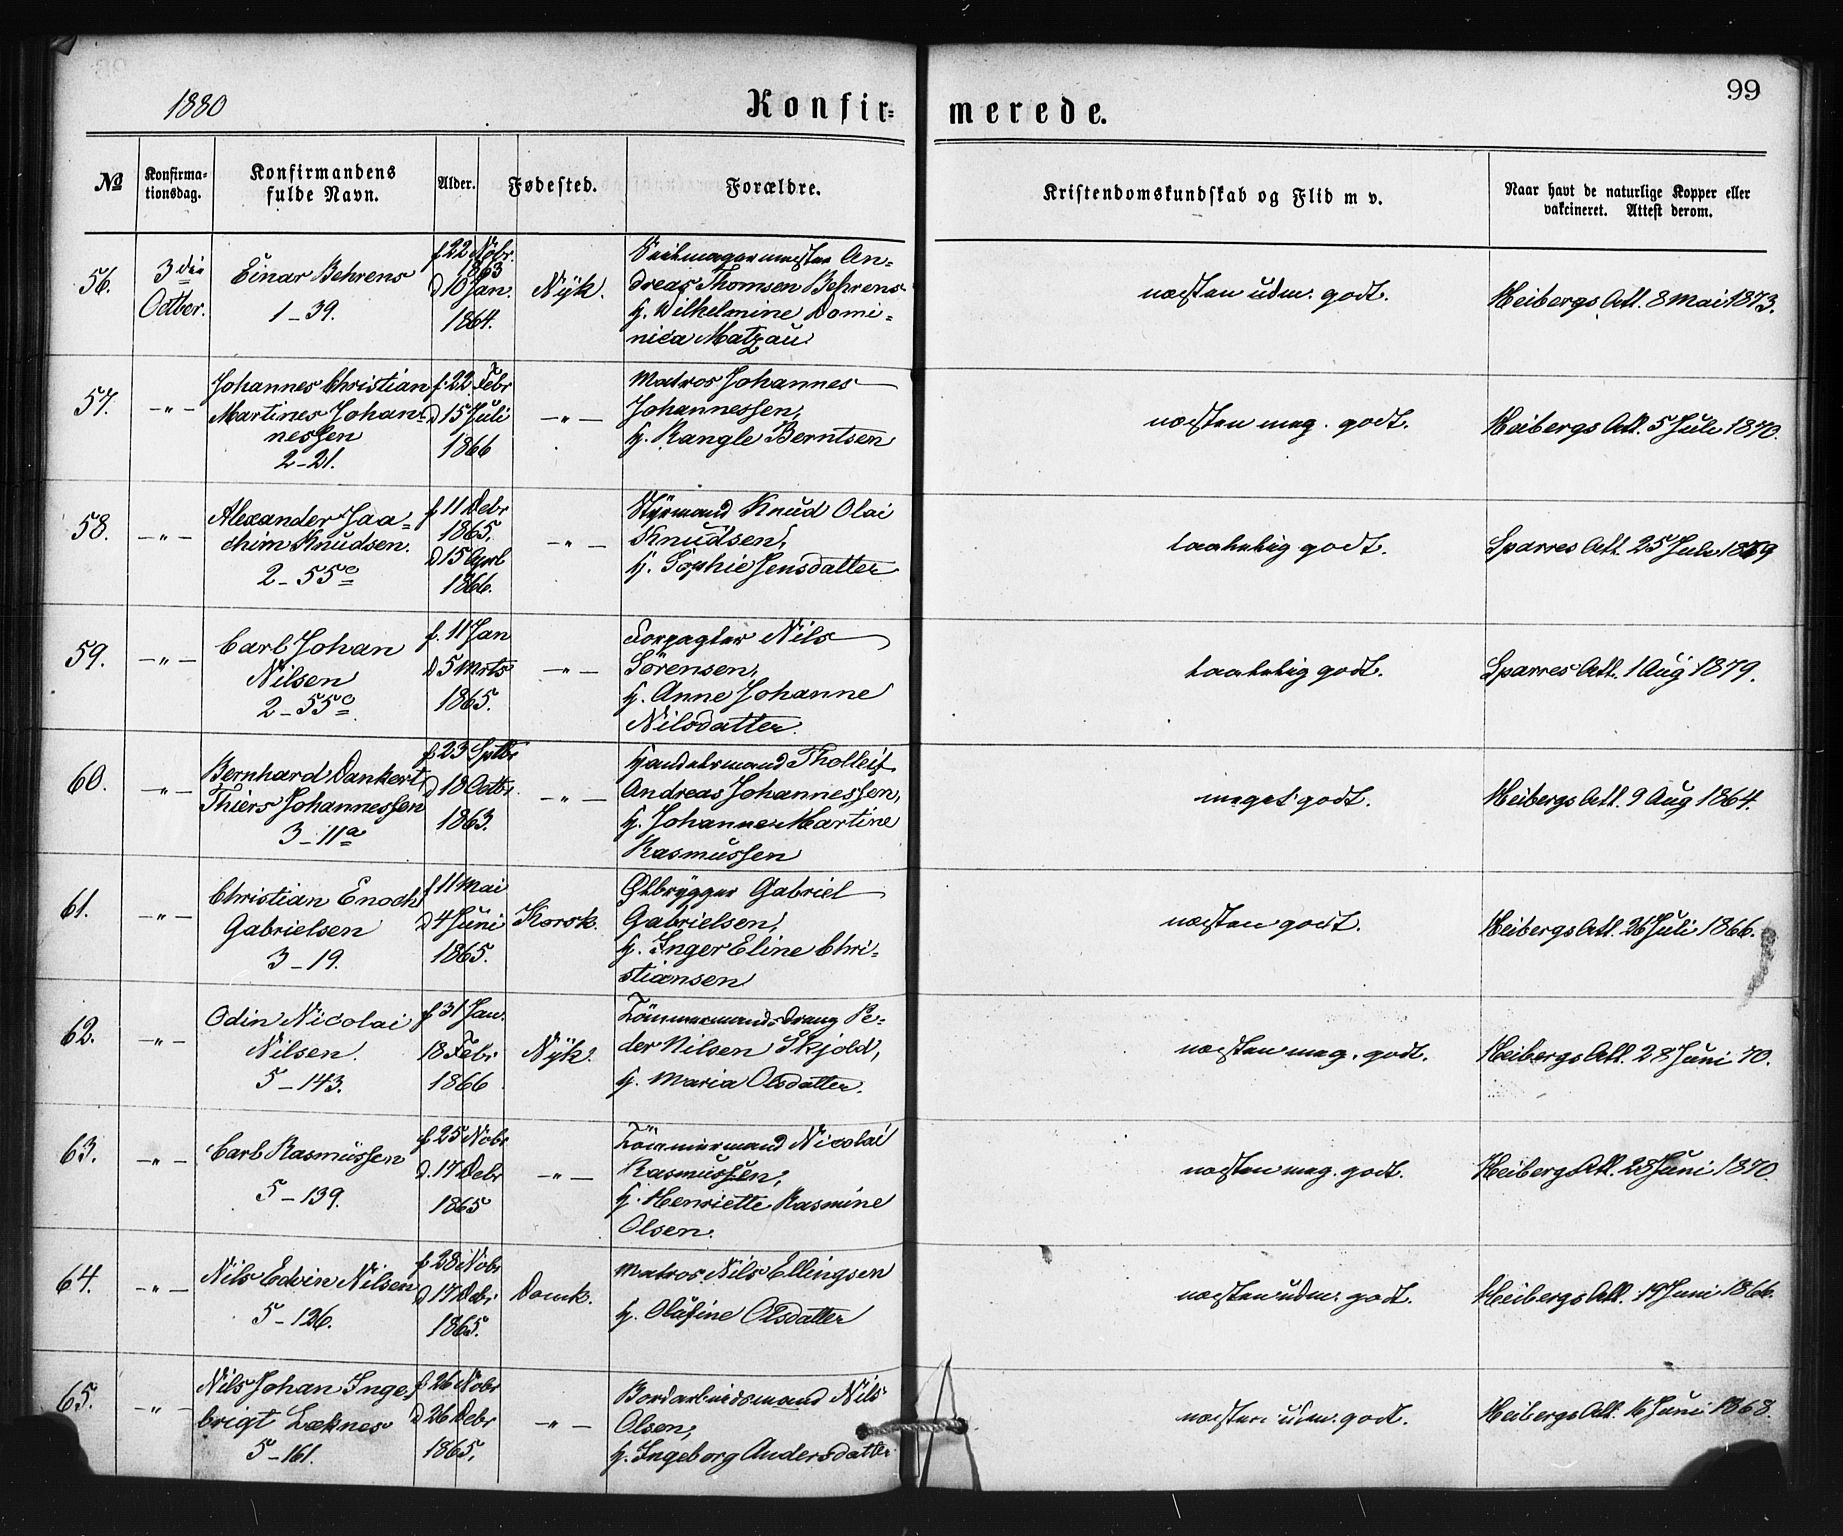 99
1880
Konfirmerede.
№ Konfirmationsdag. Konfirmandens fulde Navn. Alder. Fødested. Forældre. Kristendomskundskab og Flid m v. Naar havt de naturlige Kopper eller vakcineret. Attest derom.
56.
3die
Octber.
Einar Behrens
1-39.
f 22 Nobr.
1863
d 10 Jan.
1864.
Nÿk.
An-
dreas Thomsen Behrens
H. Wilhelmine Domi-
nica Matzau
næsten udm. godt.
Heibergs Att. 8 Mai 1873.
57.
-"-
Johannes Christian
Martines Johan-
nessen
2-21.
f. 22. Febr
d 15 Juli
1866
-"-
Matros Johannes
Johannessen,
H. Rangle Berntsen
næsten meg. godt.
Heibergs Att. 5 Juli 1870.
58.
-"-
Alexander Joa-
chim Knudsen.
2-55c
f 11 Debr
1865.
d 15 April
1866.
-"-
Styrmand Knud Olai
Knudsen,
H. Sophie Jensdatter
taalelig godt.
Sparres Att. 25 Juli 1879
59.
-"-
Carl Johan
Nilsen
2-55c
f. 11 Jan
d 5 Mrts
1865.
-"-
Forpagter Nils
Sörensen,
H. Anne Johanne
Nilsdatter.
taalelig godt.
Sparres Att. 1 Aug 1879.
60.
-"-
Bernhard Dankert
Thiers Johannessen
3-11a
f 23 Sptbr
d 18 Octbr.
1863.
-"-
Handelsmand Tholleif
Andreas Johannessen,
H. Johanne Martine
Rasmussen
meget godt.
Heibergs Att. 9 Aug 1864.
61.
-"-
Christian Enoch
Gabrielsen
3-19.
f 11 Mai
d 4 Juni
1865.
Korsk.
Ølbrygger Gabriel
Gabrielsen,
H. Inger Eline Chri-
stiansen
næsten godt.
Heibergs Att. 26 Juli 1866.
62.
-"-
Odin Nicolai
Nilsen.
5-143.
f 31 Jan.
18 Febr
1866
Nÿk.
Tömmermandsdreng Pe-
der Nilsen Skjold,
H. Maria Olsdatter.
næsten meg. godt.
Heibergs Att. 28 Juni 70.
63.
-"-
Carl Rasmussen
5-139.
f 25 Nobr
d. 17 Debr
1865
-"-
Tömmermand Nicolai
Rasmussen,
H. Henriette Rasmine
Olsen.
næsten meg. godt.
Heibergs Att. 28 Juni 1870.
64.
-"-
Nils Edvin Nilsen
5-126.
f 28 Nobr
d 17 Debr
1865.
Domk.
Matros Nils Ellingsen
H. Olufine Olsdatter
næsten udm. godt.
Heibergs Att. 19 Juni 1866.
65.
-"-
Nils Johan Inge-
brigt Læknes
5-161.
f 26 Nobr
d 26 Debr
1865.
-"-
Bordarbeidsmand Nils
Olsen,
H. Ingeborg Andersdatter
næsten udm. godt.
Heibergs Att. 16 Juni 1868.